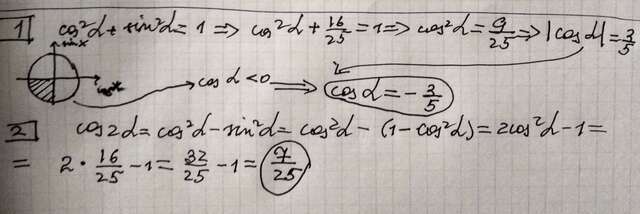 1 cos²α + sin²α = 1 => cos²α + 16/25 = 1 => cos²α = 9/25 => |cosα| = 3/5
sinx
cosx
cosα < 0 => cosα = - 3/5
2 cos2α = cos²α - sin²α = cos²α - (1 - cos²α) = 2cos²α - 1 =
= 2 · 16/25 - 1 = 32/25 - 1 = 7/25